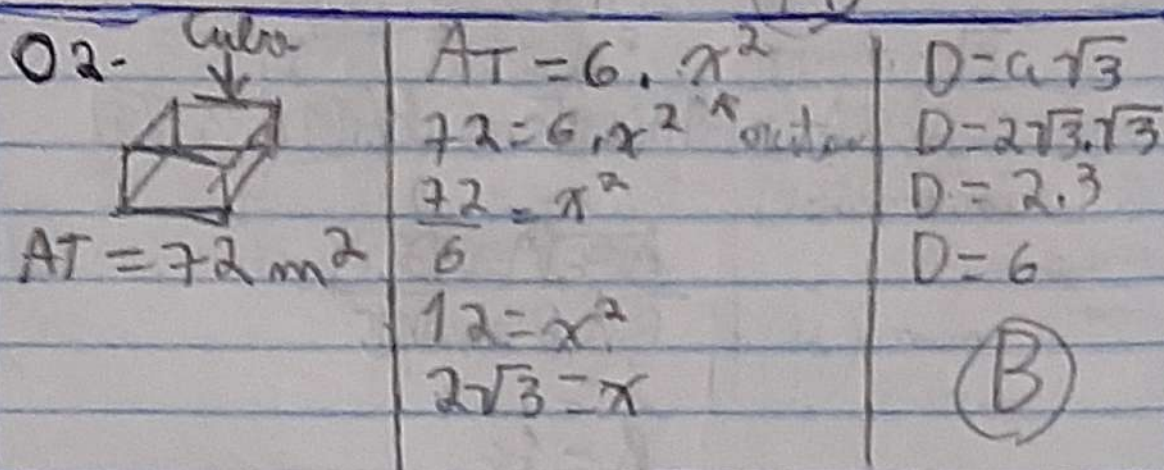 02- Cubo
AT = 72 m²
AT = 6 . x²
72 = 6 . x²
72/6 = x²
12 = x²
2√3 = x
D = a√3
D = 2√3.√3
D = 2.3
D = 6
B